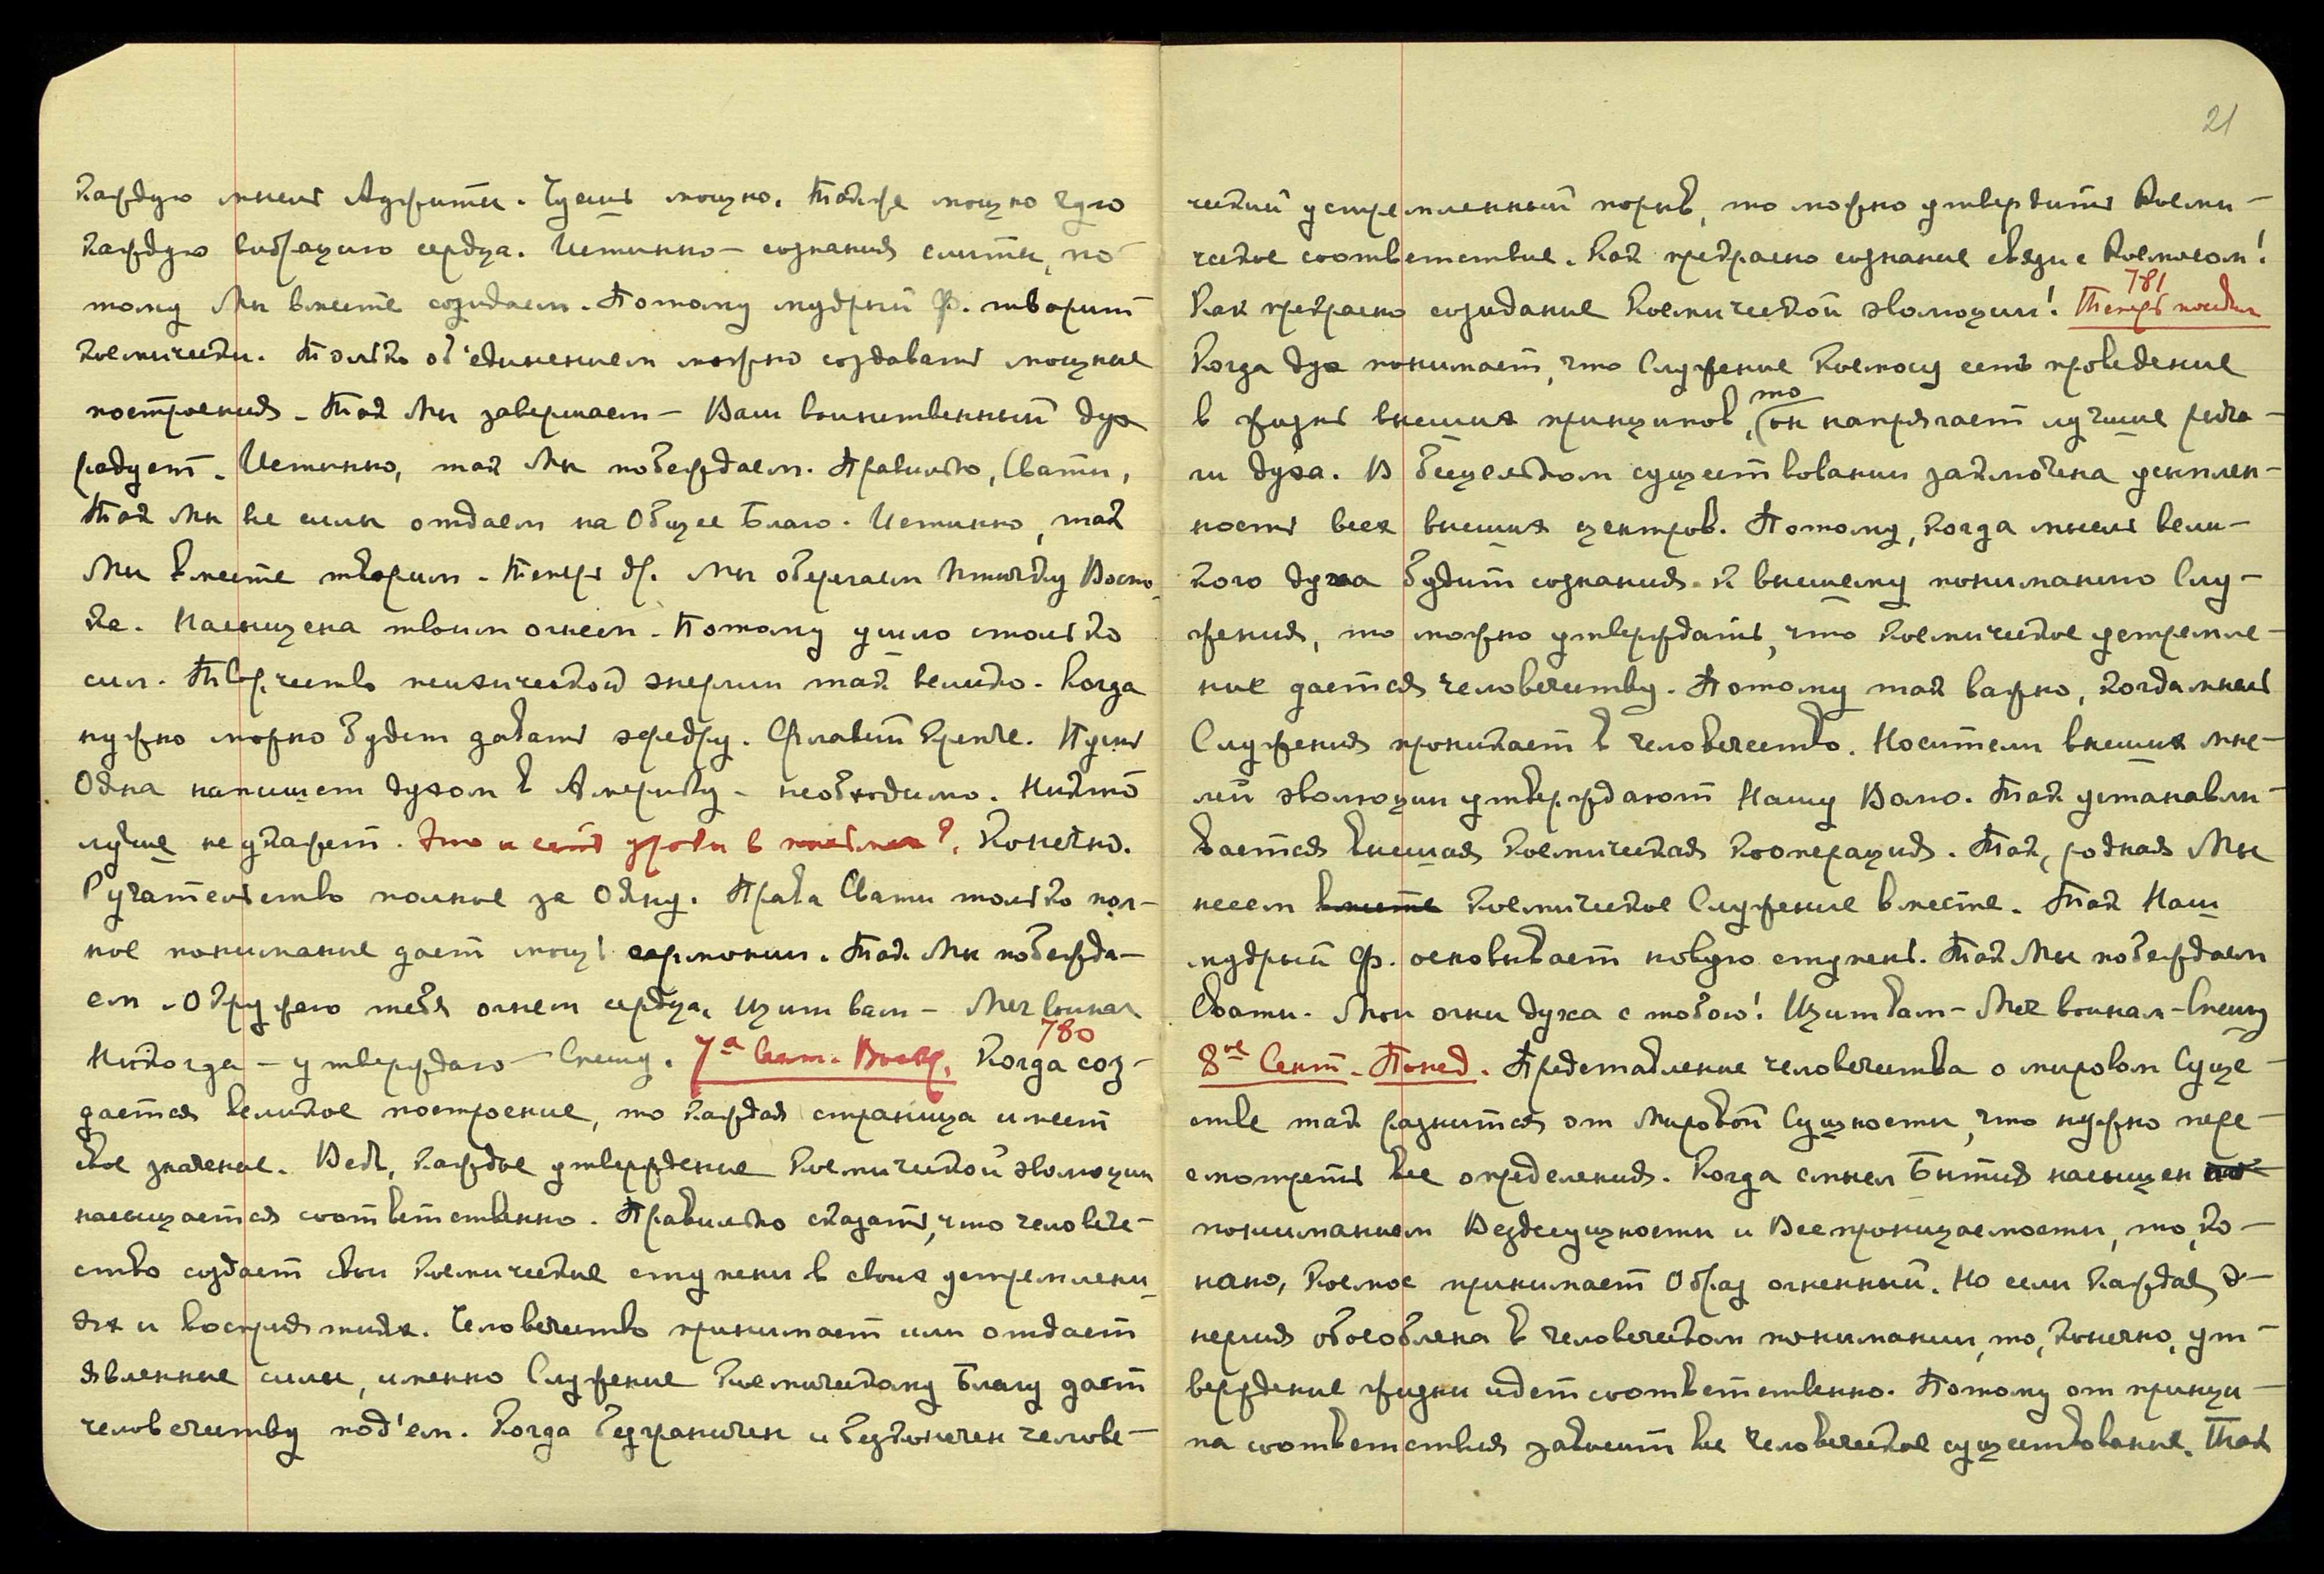 каждую мысль Адепты. Чуешь мощно. Также мощно чую
каждую вибрацию сердца. Истинно – сознания слиты, по-
тому Мы вместе созидаем. Потому мудрый Ф. творит
космически. Только об'единением можно создавать мощные
построения. Так Мы завершаем – Ваш воинственный дух
радует. Истинно, так Мы побеждаем. Правильно, Свати,
Так Мы все силы отдаем на Общее Благо. Истинно, так
Мы вместе творим. Теперь др. Мы оберегаем Птичку Восто-
ка. Насыщена твоим огнем. Потому ушло столько
сил. Творчество психической энергии так велико. Когда
нужно можно будет давать эфедру. Флавий крепче. Пусть
Одна напишет духом в Америку – необходимо. Никто
лучше не укажет. Это и есть уроки в ? Конечно.
Ручательство полное за Одну. Права Свати только пол-
ное понимание дает мощь гармонии. Так Мы побежда-
ем. Окружаю тебя огнем сердца, щит вам – Меч вынал
Никогда – утверждаю – Спешу. 7ª Сент. Воскр. 780 Когда соз-
дается великое построение, то каждая страница имеет
свое значение. Ведь, каждое утверждение Космической эволюции
насыщается соответственно. Правильно сказать, что человече-
ство создает свои космические ступени в своих устремлени-
ях и восприятиях. Человечество принимает или отдает
явленные силы, именно Служение Космическому Благу дает
человечеству под'ем. Когда безграничен и бесконечен челове-
21
ческий устремленный порыв, то можно утвердить Косми-
ческое соответствие. Как прекрасно сознание связи с Космосом!
Как прекрасно созидание Космической эволюции! 781 Теперь
Когда дух понимает, что Служение Космосу есть проведение
в жизнь высших принципов, то (он напрягает лучшие рыча-
ги духа. В бесцельном существовании заключена усыплен-
ность всех высших центров. Потому, когда мысль вели-
кого духа будит сознания к высшему пониманию Слу-
жения, то можно утверждать, что космическое устремле-
ние дается человечеству. Потому так важно, когда мысль
Служения проникает в человечество. Носители высших мыс-
лей эволюции утверждают Нашу Волю. Так устанавли-
вается высшая космическая кооперация. Так, родная Мы
несем вместе Космическое Служение вместе. Так Наш
мудрый Ф. основывает новую ступень. Так Мы побеждаем
Свати. Мои огни духа с тобою! Щит вам – Меч вынал – Спешу
8ое Сент. Понед. Представление человечества о мировом Суще-
стве так разнится от Мировой Сущности, что нужно пере-
смотреть все определения. Когда смысл Бытия насыщен
пониманием Вездесущности и Всепроницаемости, то, ко-
нечно, Космос принимает Образ огненный. Но если каждая э-
нергия обособлена в человеческом понимании, то, конечно, ут-
верждение жизни идет соответственно. Потому от принци-
па соответствия зависит все человеческое существование. Так